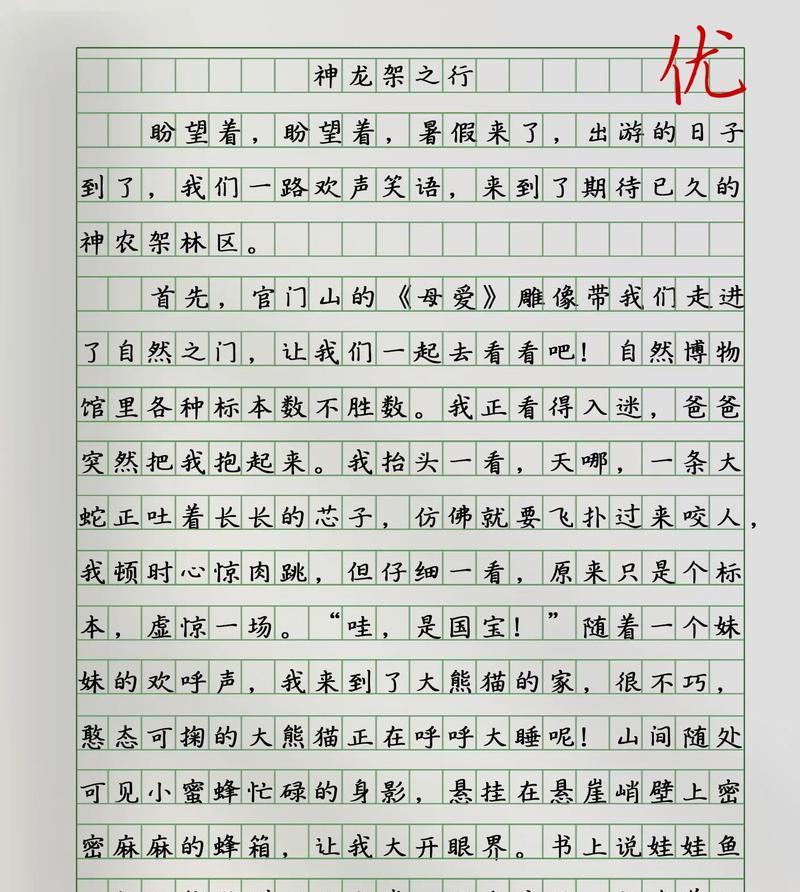 优
神龙架之行
盼望着，盼望着，暑假来了，出游的日子
到了，我们一路欢声笑语，来到了期待已久的
神农架林区。
首先，官门山的《母爱》雕像带我们走进
了自然之门，让我们一起去看看吧！自然博物
馆里各种标本数不胜数。我正看得入迷，爸爸
突然把我抱起来。我抬头一看，天哪，一条大
蛇正吐着长长的芯子，仿佛就要飞扑过来咬人，
我顿时心惊肉跳，但仔细一看，原来只是个标
本，虚惊一场。“哇，是国宝！”随着一个妹
妹的欢呼声，我来到了大熊猫的家，很不巧，
憨态可掬的大熊猫正在呼呼大睡呢！山间随处
可见小蜜蜂忙碌的身影，悬挂在悬崖峭壁上密
密麻麻的蜂箱，让我大开眼界。书上说娃娃鱼